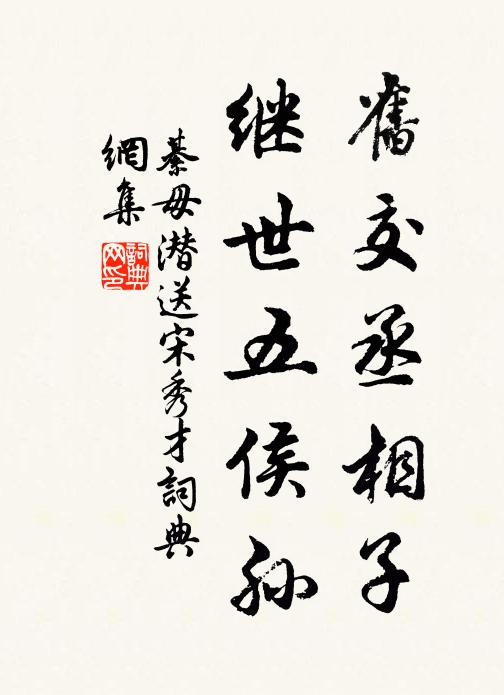 舊交丞相子
继世五侯孫
綦毋潜送宋秀才詞典
網集
詞典网印